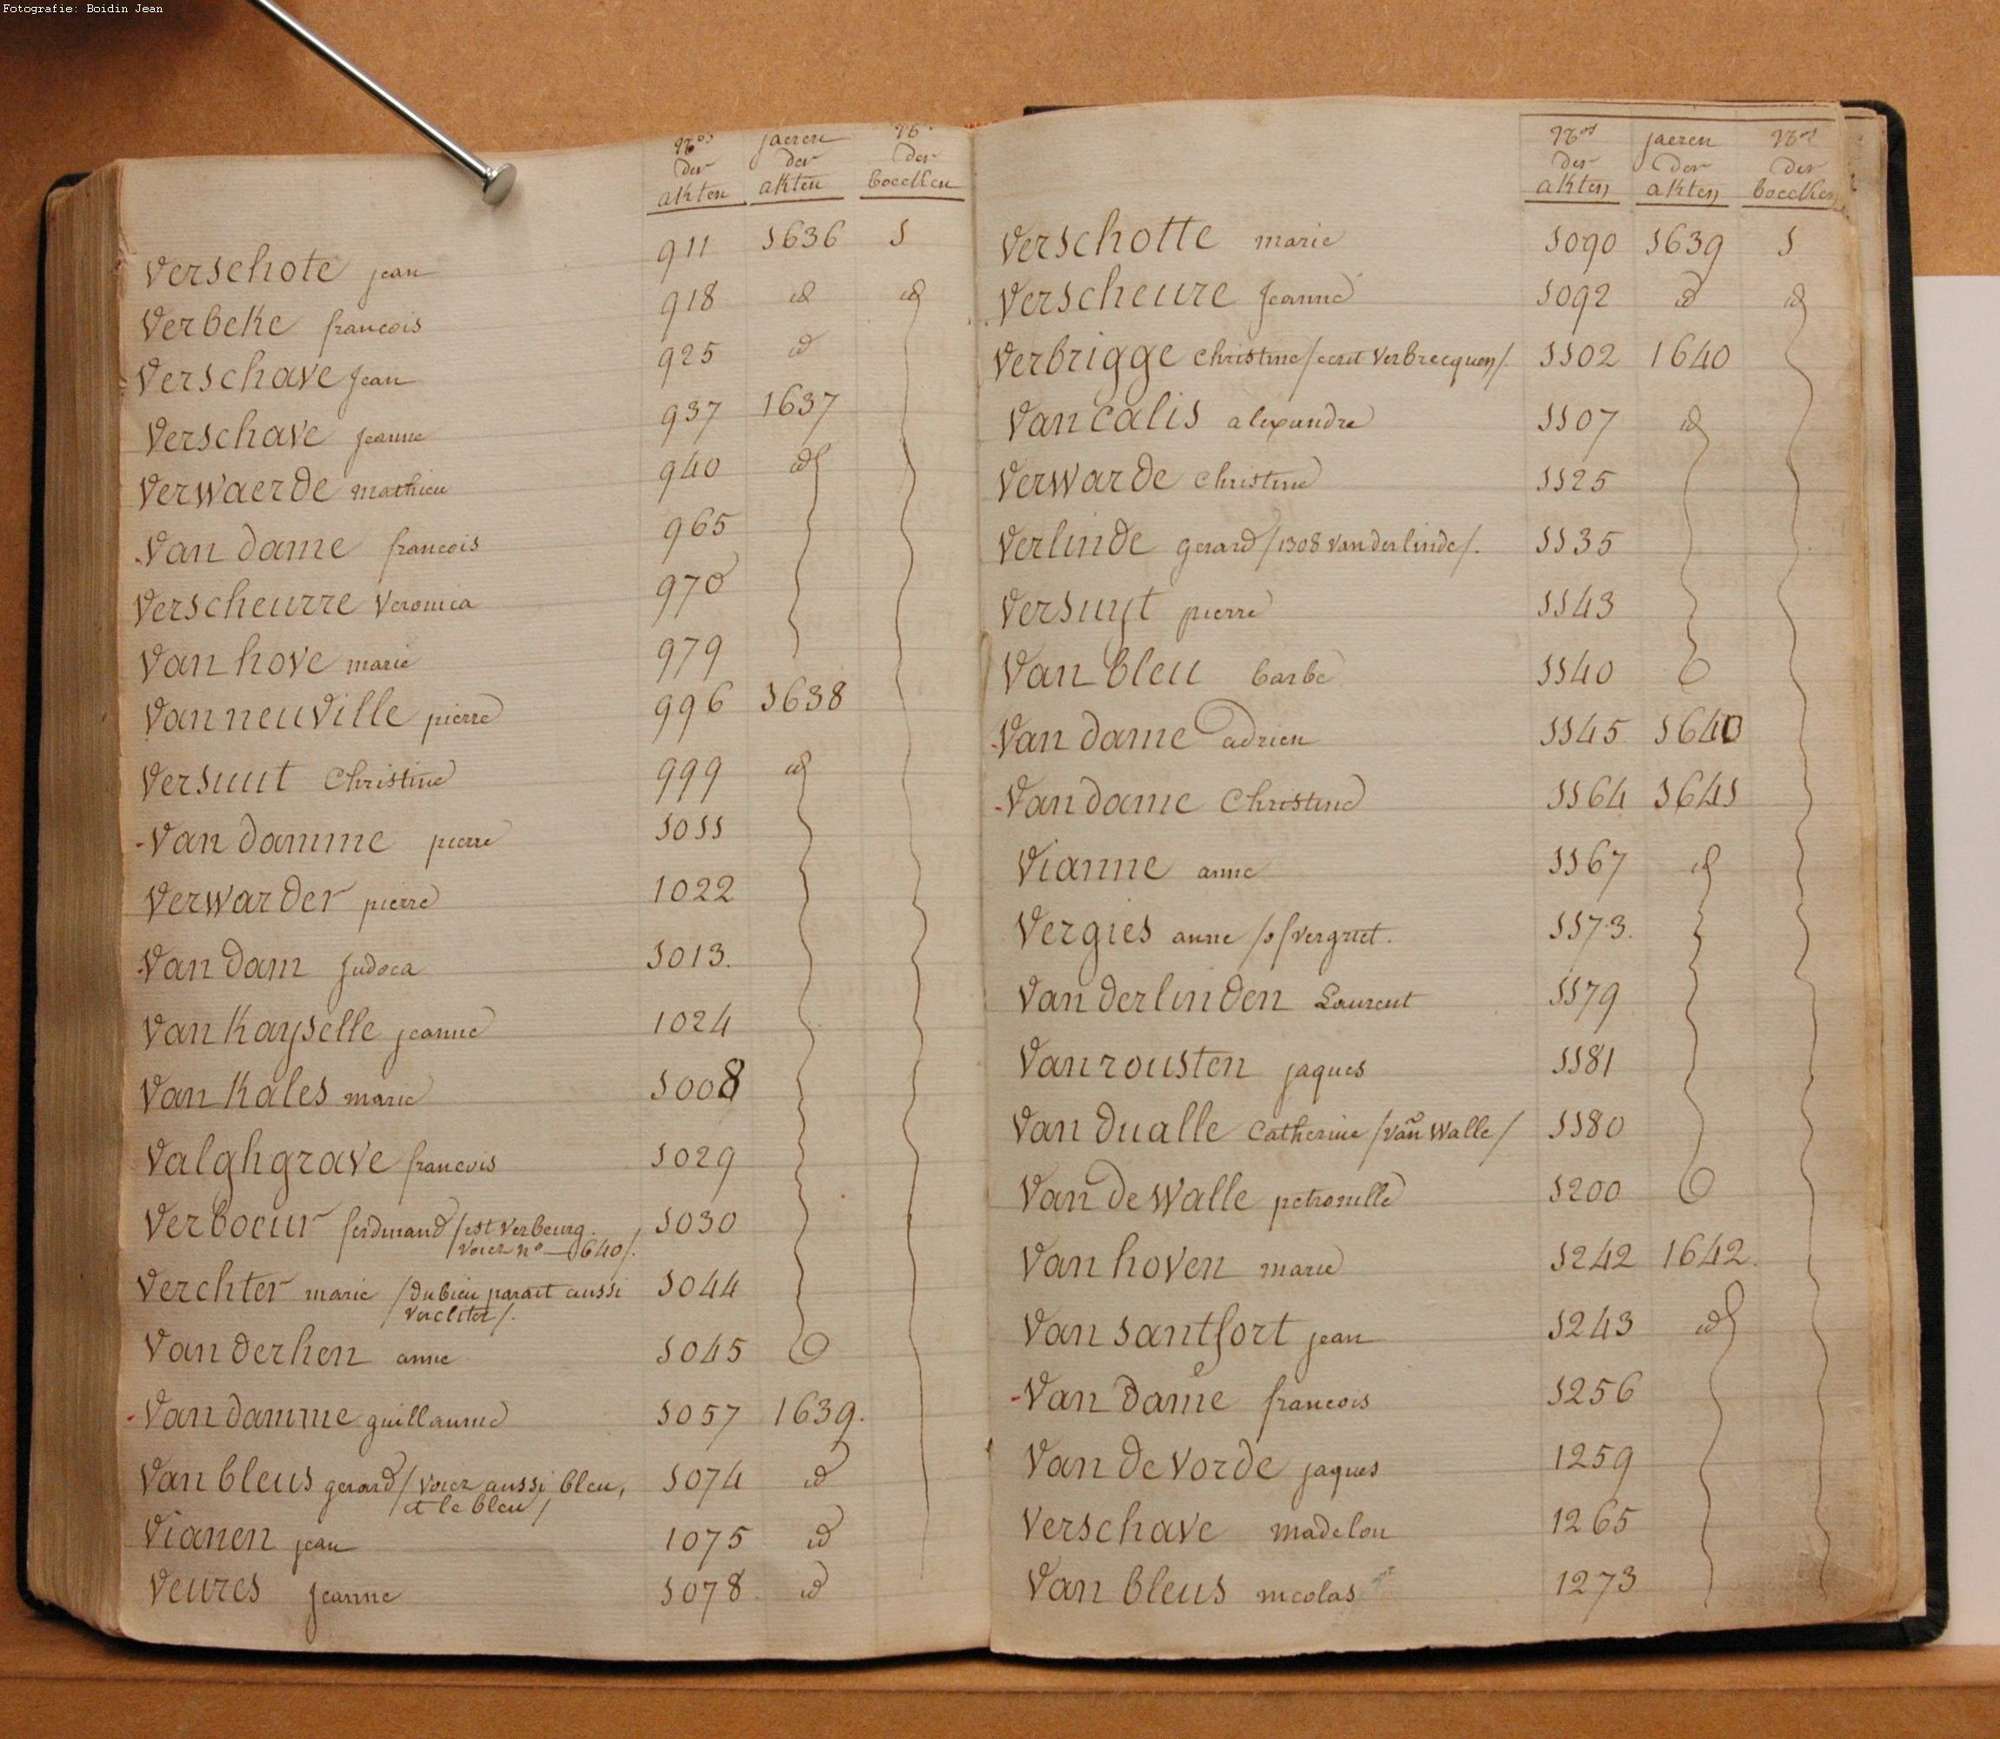 Fotografie: Boidin Jean
Nos der akten jaeren der akten No der boecken
Verschote jean 911 1636 1
Verbeke francois 918 id id
Verschave Jean 925 id
Verschave Jeanne 937 1637
Verwaerde mathieu 940 id
Van dame francois 965
Verscheurre Veronica 970
Van hove marie 979
Vanneuville pierre 996 1638
Versuut Christine 999 id
Van damme pierre 1011
Verwarder pierre 1022
Van dam Judoca 1013.
Van Kayselle jeanne 1024
Van Kales marie 1008
Valghgrave francois 1029
Verboeur ferdinand /est Verbeurg. 1030
voiez no 640/.
Verchter marie /du bien parait aussi 1044
Vercliter/.
Van derhen anne 1045
Van damme guillaume 1057 1639.
Van bleus gerard /voiez aussi bleu, 1074 id
et le bleu/
Vianen jean 1075 id
Veures Jeanne 1078. id
Nos der akten jaeren der akten Nos der boecken
Verschotte marie 1090 1639 1
Verscheure Jeanne 1092 id id
Verbrigge christine /ecrit Verbrecquen/. 1102 1640
Van calis alexandre 1107 id
Verwarde Christine 1125
Verlinde gerard /1308 Van der linde/. 1135
Versuyt pierre 1143
Van bleu barbe 1140
Van dame adrien 1145 1640
Van dame Christine 1164 1641
Vianne anne 1167 id
Vergies anne /s/ vergriet. 1173.
Van derlinden Laurent 1179
Van rousten jaques 1181
Van dualle Catherine /Van Walle/ 1180
Van de Walle petronille 1200
Van hoven marie 1242 1642.
Van santfort jean 1243 id
Van dame francois 1256
Van de Vorde jaques 1259
Verschave madelon 1265
Van bleus nicolas 1273